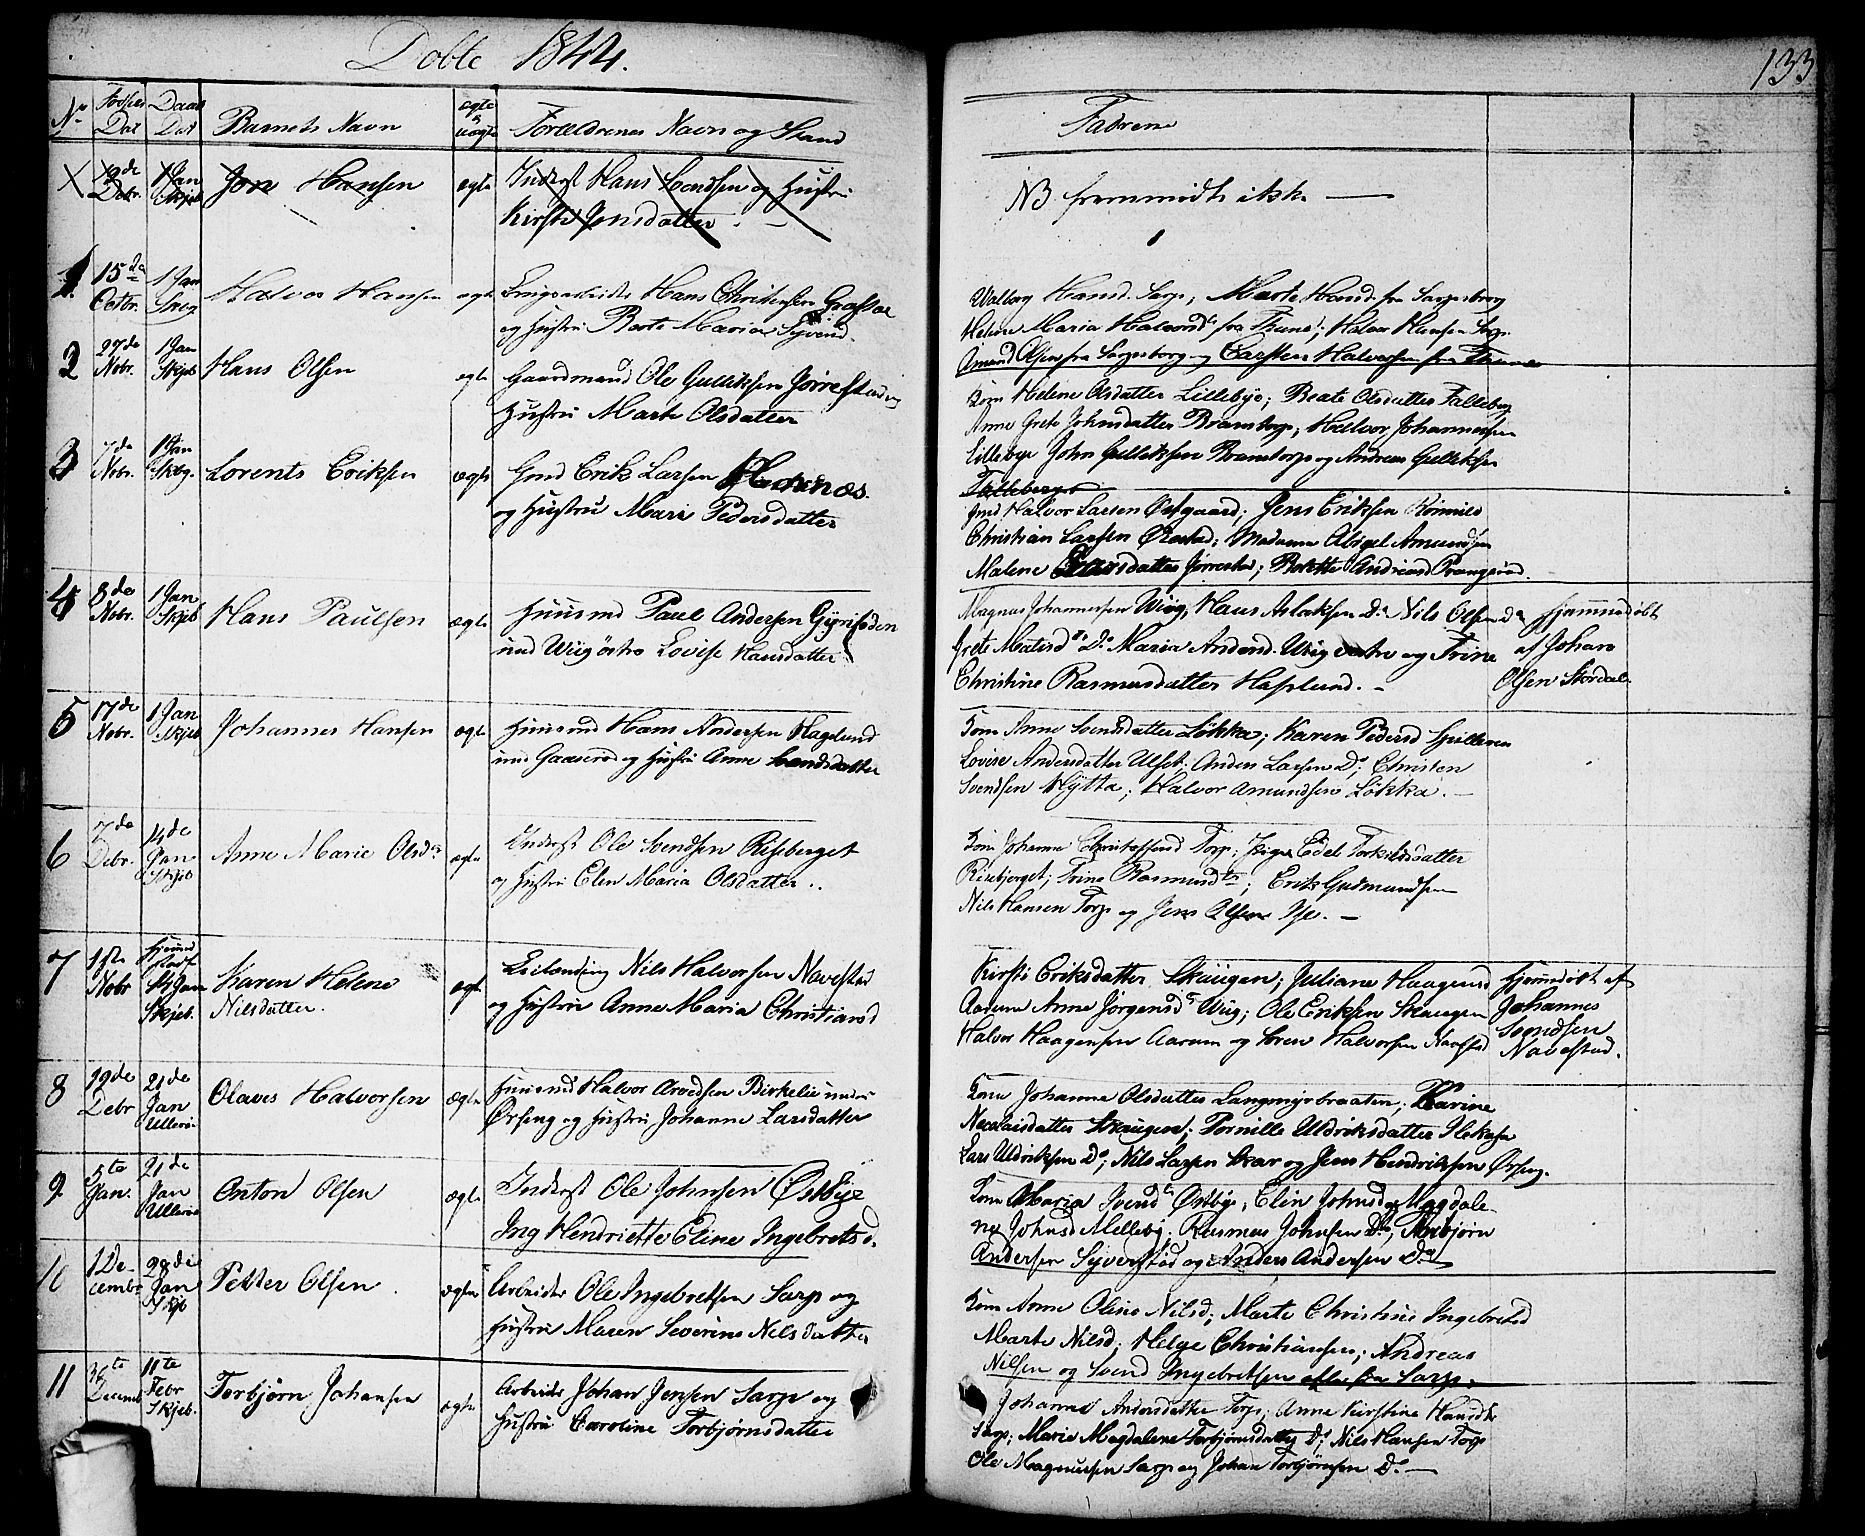 Døbte 1844.
133
No Fødsels Dat Daabs Dat Barnets Navn ægte uægte Forældrenes Navn og Stand
Fadrene
Debr. 1 Jan Skjeb Jon Hansen ægte Inderst Hans og Hustru
Kirsti Jensdatter.
NB fremmødte ikke
1. 15de Octbr. 1 Jan Halvor Hansen ægte Hans Christensen
og Hustru Berte Maria
Walborg Hansd. Sarp; Marte Hansd. fra Sarpsborg
Helene Maria Halvorsd fra Thune; Halvor Hansen Sarp
Amund Olsen fra Sarpsborg og Carsten Halvorsen fra Thune
2 27de Nobr. 1 Jan Skjeb Hans Olsen ægte Gaardmand Ole Gulliksen Jørrestad og
Hustru Marte Olsdatter
Kone Helene Olsdatter Lillebye; Beate Olsdatter
Anne Grete Johnsdatter Bramtorp; Halvor Johannesen
Lillebye John Gulliksen Bramtorp og Andreas Gulliksen
3 7de Nobr. 1 Jan Lorents Eriksen ægte Gmd Erik Larsen
og Hustru Mari Pedersdatter
Gmd Halvor Larsen; Jens Eriksen
Christian Larsen; Madame Abigel Amundsen
Malene Jørrestad; Andreasd
4 8de Nobr. 1 Jan Skjeb Hans Paulsen ægte Huusmd Paul Andersen
und Wiig østre Lovise Hansdatter
Magnus Johannesen Wiig; Hans Aslaksen Do Nils Olsen Do
Grete Matisd Do Maria Andersd. Wiig østre og Trine
Christine Rasmusdatter Haslund.
Hjemmedøbt
af Johan
Olsen Stordal
5 17de Nobr. 1 Jan Skjeb Johannes Hansen ægte Huusmd Hans Andersen Haslund
und Gaaserød og Hustru Anne
Kone Anne Svendsdatter Løkka; Karen Pedersd
Lovise Andersdatter Ulset; Anders Larsen Do; Christen
Svendsen Hytta; Halvor Amundsen Løkka.
6 7de Debr. 14de Jan Skjeb Anne Marie Olsdtr ægte Inderst Ole Svendsen Riseberget
og Hustru Elen Maria Olsdatter.
Kone Johanne Christoffersd Torp; Pige Edel Torkildsdatter
Risebjerget; Trine Rasmusdtr; Erik Gudmundsen
Nils Hansen Torp og Jens Olsen
7 1ste Nobr 14 Jan Skjeb. Karen Helene
Nilsdatter.
ægte Leilænding Nils Halvorsen Navestad
og Hustru Anne Maria Christiansd
Kirsti Eriksdatter Skaugen; Juliane Haagensd
Aarum Anne Jørgensd Wiig; Ole Eriksen Skaugen
Halvor Haagensen Aarum og Søren Halvorsen Navestad
Hjemmedøbt af
Johannes
Svendsen
Navestad.
8 19de Debr 21de Jan Ullerøe Olaves Halvorsen ægte Huusmd Halvor Arvedsen Birkelie under
Ørseng og Hustru Johanne Larsdatter
Kone Johanna Olsdatter Langmyrbraaten; Karine
Nicolaisdatter Skaugen; Pernille Uldriksdatter
Lars Uldriksen Do; Nils Larsen Skar og Jens Hendriksen Ørseng.
9 5te Jan. 21de Jan Ullerøe Anton Olsen ægte Inderst Ole Johnsen Østbye
Ing Hendriette Eline Ingebretsd.
Kone Maria Svendsd Østbye; Elin Johnsd og Magdale-
ne Johnsd Mellebÿ; Rasmus Johnsen Do; Torbjørn
Andersen Syverstad og Anders Andersen Do
10 1 December 28de Jan Skjb Petter Olsen. ægte Arbeider Ole Ingebretsen Sarp og
Hustru Maren Severine Nilsdatter
Kone Anne Oline Nilsd; Marte Christine Ingebretsd
Marte Nilsd; Helge Christiansen; Andreas
Nilsen og Svend Ingebretsen alle fra Sarp.
11 Decemb 11te Febr Skjeb. Torbjørn Johansen ægte Arbeider Johan Jensen Sarp og
Hustru Caroline Torbjørnsdatter
Johanne Andersdatter Torp; Anne Kirstine Hansdtr
Sarp; Marie Magdalene Torbjørnsdatter Do; Nils Hansen Torp
Ole Magnussen Sarp og Johan Torbjørnsen Do.